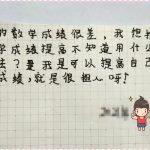 的数学成绩很差,我想把
学成绩提高不知道用什么
法?董我是可以提高自己
成绩,就是很担心呀!